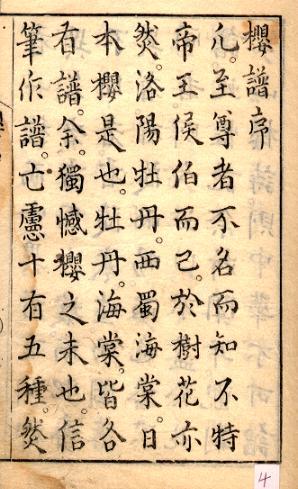 櫻譜序
凢。至尊者不名而知不特
帝王侯伯而已。於樹花亦
然。洛陽牡丹。西蜀海棠。日
本櫻是也。牡丹。海棠。皆各
有譜。余獨憾櫻之未也。信
筆作譜。亡慮十有五種。然
4